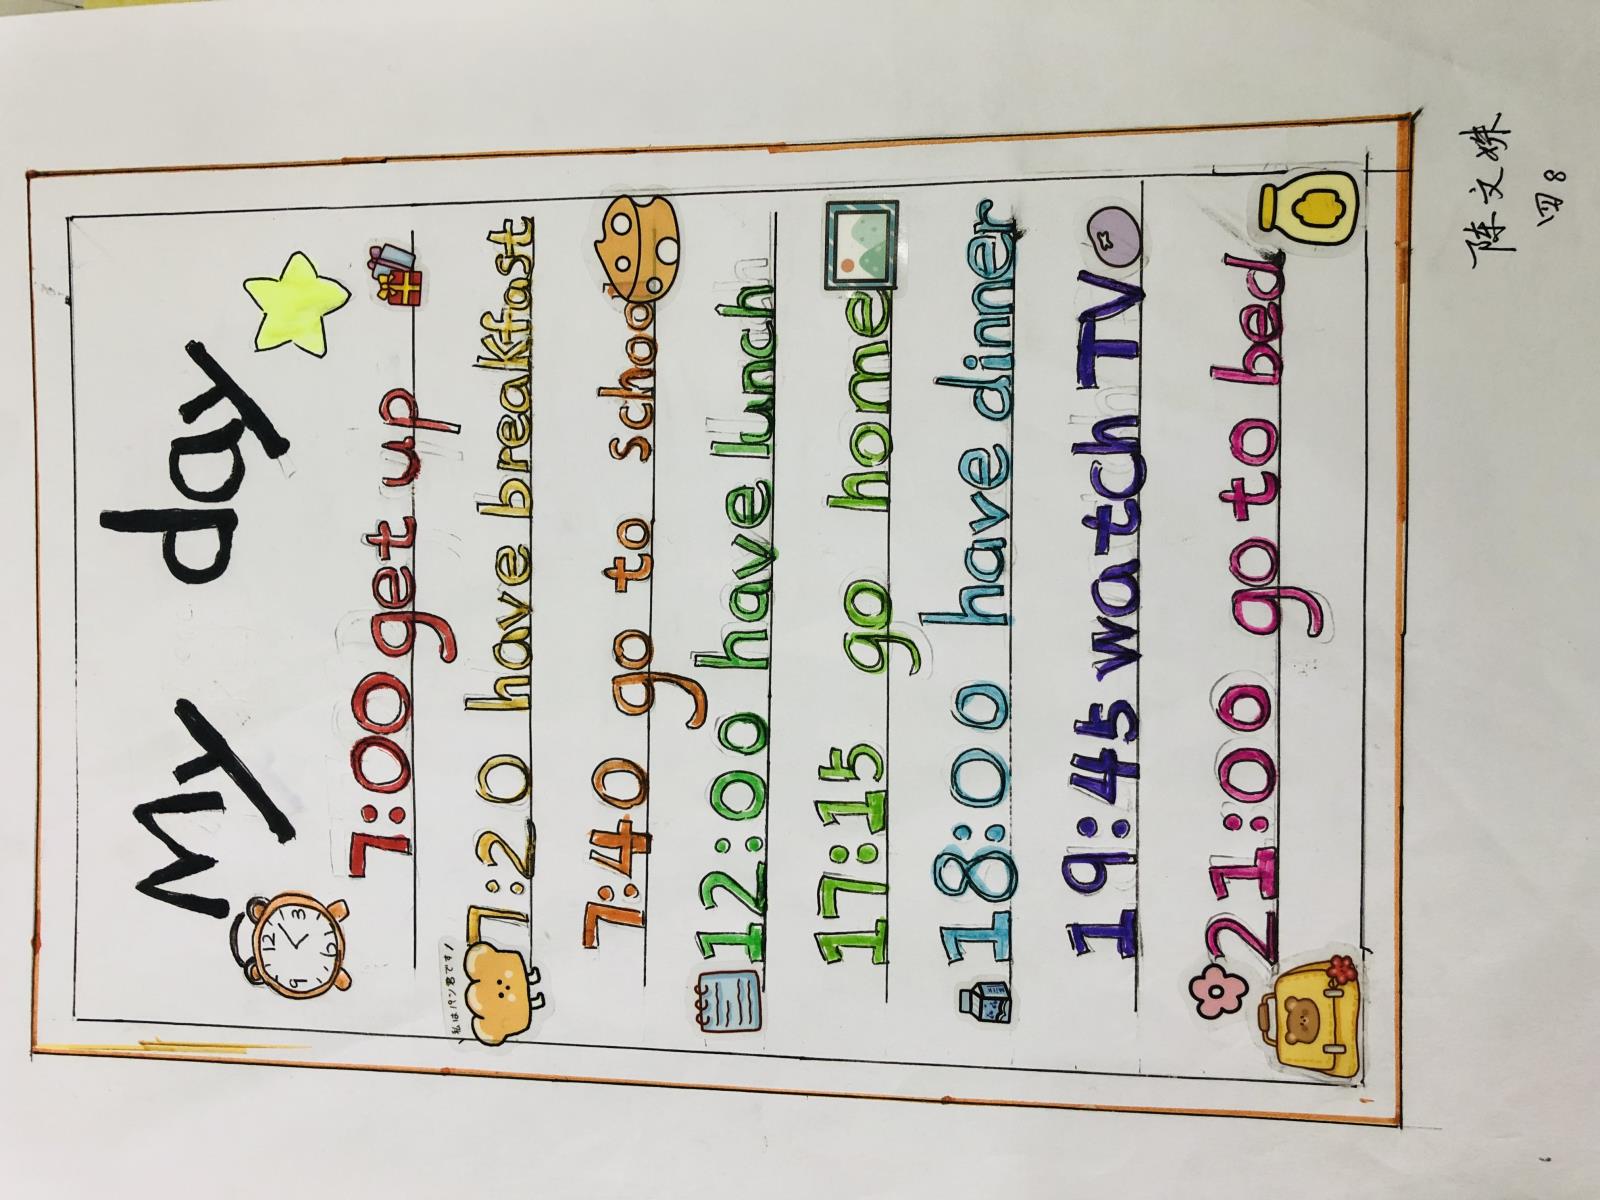 My day
12
3
6
9
7:00 get up
私はパン君です!
7:20 have breakfast
7:40 go to school
12:00 have lunch
17:15 go home
18:00 have dinner
MILK
19:45 watch TV
21:00 go to bed
陈文姝
四8